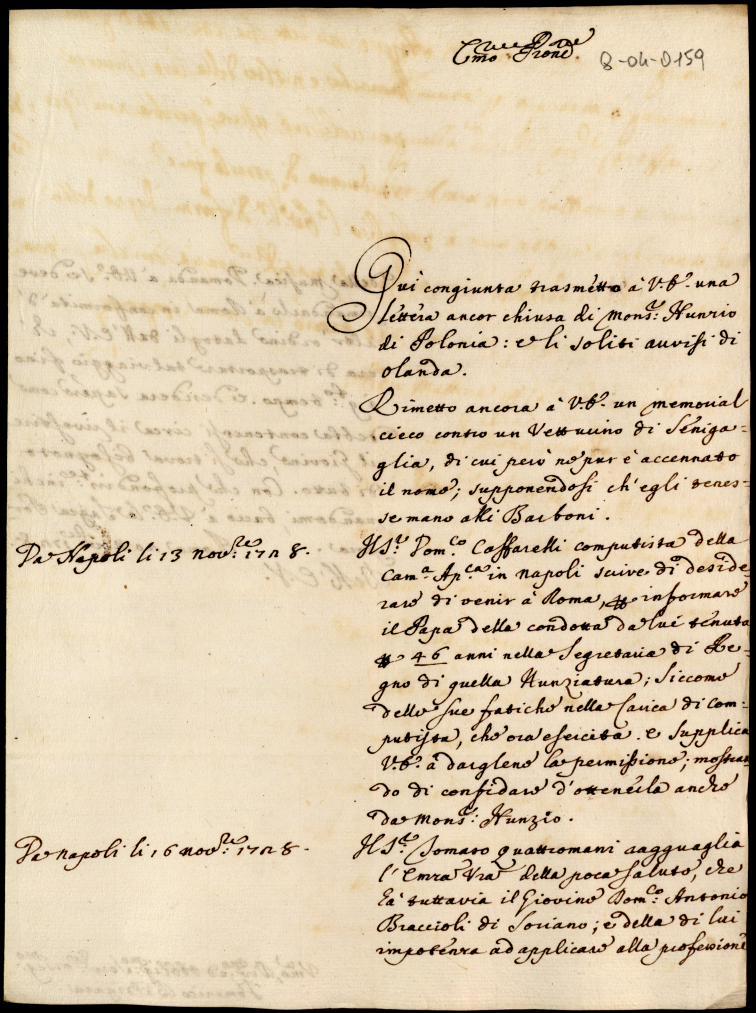 Em.mo Prone
8-04-D159
Qui congiunta trasmetto à V.E. una
lettera ancor chiusa di Mons.r Nunzio
di Polonia: e li soliti avvisi di
Olanda.
Rimetto ancora à V.E. un memorial
cieco contro un Vetturino di Seniga=
glia, di cui però nè pur è accennato
il nome; supponendosi ch'egli tenes=
se mano alli Barboni.
Da Napoli li 13 nov.re 1728.
Il S.r Dom.co Caffarelli computista della
Cam.a Ap.ca in Napoli scrive di deside=
rare di venir à Roma, informare
il Papa della condotta da lui tenuta
46 anni nella Segretaria di Re=
gno di quella Nunziatura; siccome
delle sue fatiche nella Carica di Com=
putista, che ora esercita. e supplica
V.E. à dargliene la permissione; mostran
do di confidare d'ottenerla anche
da Mons.r Nunzio.
Da Napoli li 16 nov.re 1728.
Il S.r Tomaso Quattromani ragguaglia
l'Emza Vra della poca salute, che
hà tuttavia il Giovine Dom.co Antonio
Braccioli di Soriano; e della di lui
impotenza ad applicare alla professione